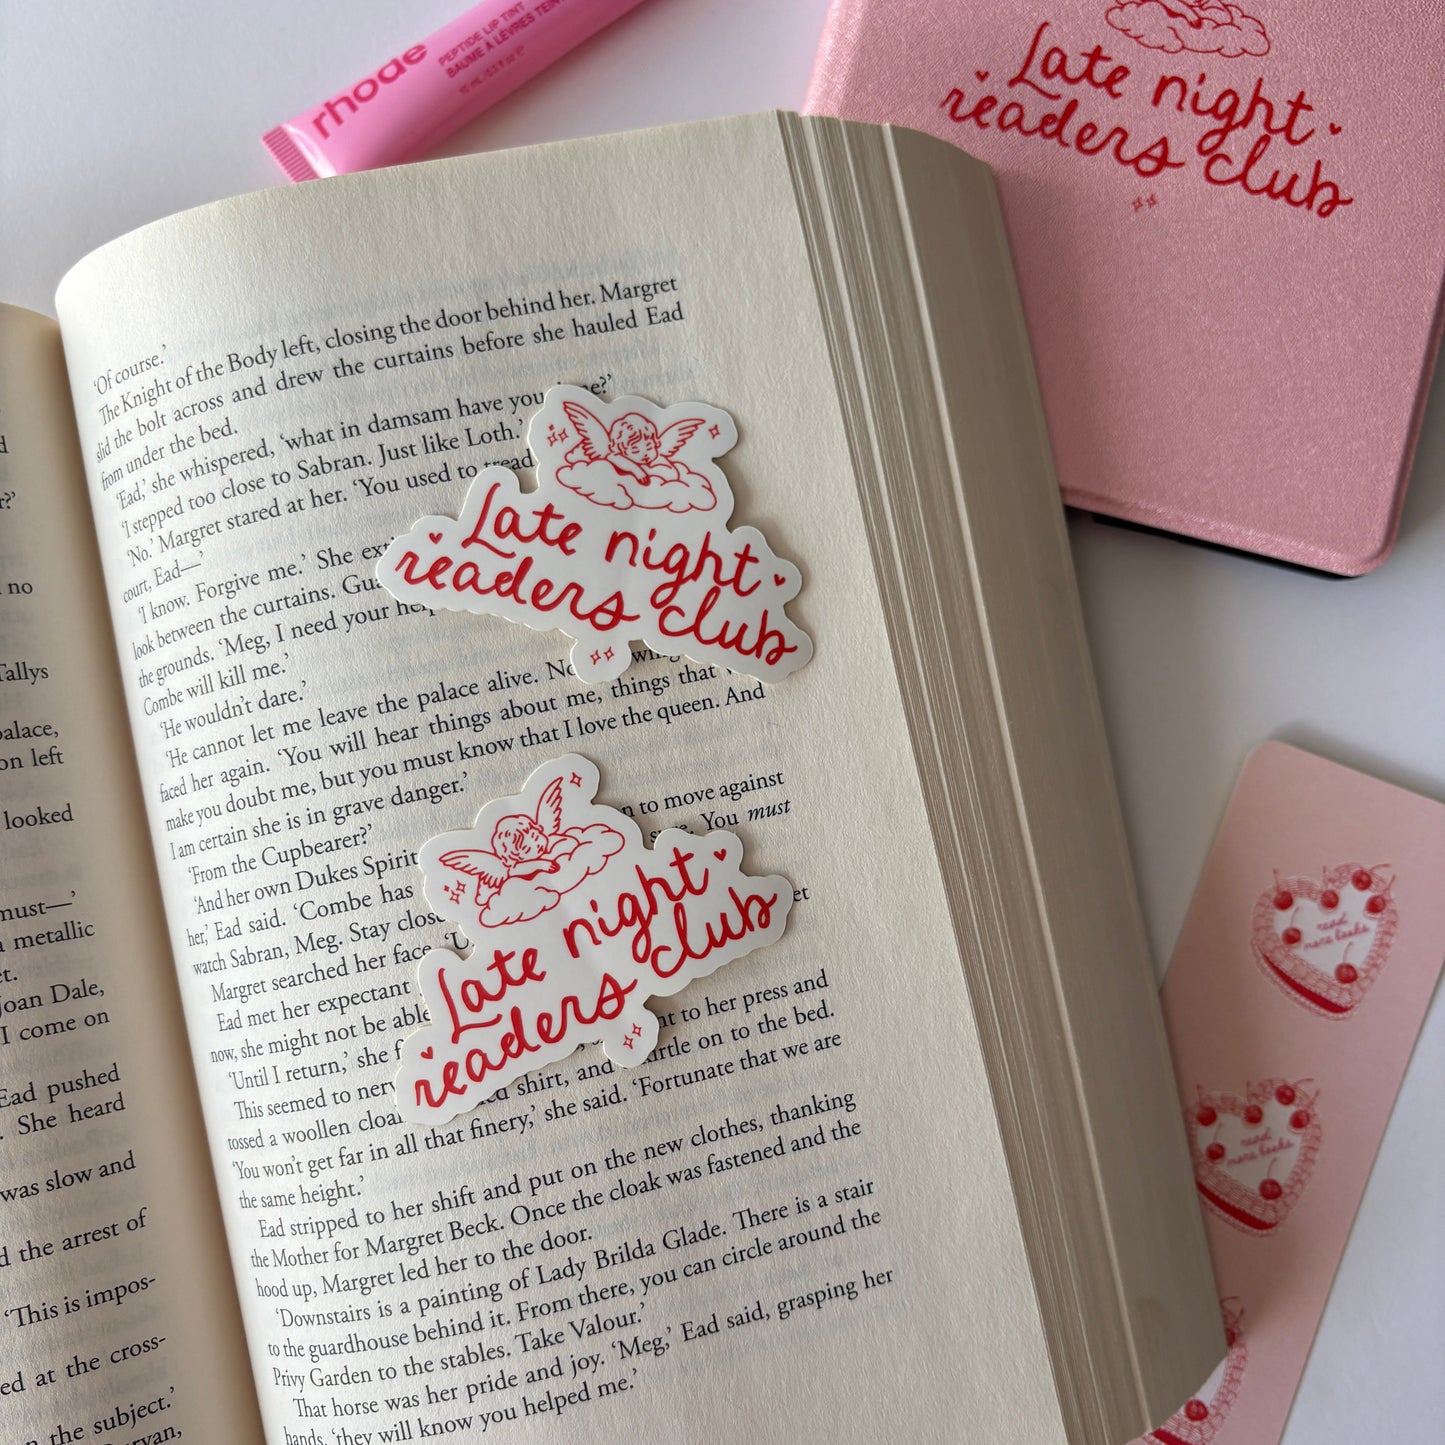 rhode
PEPTIDE LIP TINT
BAUME À LÈVRES TEINT
Late night
readers club
d
r?'
no
Tallys
palace,
on left
looked
must—'
a metallic
et.
Joan Dale,
I come on
Ead pushed
. She heard
was slow and
d the arrest of
'This is impos-
ed at the cross-
n the subject.'
'Of course.'
The Knight of the Body left, closing the door behind her. Margret
slid the bolt across and drew the curtains before she hauled Ead
from under the bed.
'Ead,' she whispered, 'what in damsam have you me?'
'I stepped too close to Sabran. Just like Loth.'
'No.' Margret stared at her. 'You used to tread
court, Ead—'
'I know. Forgive me.' She
look between the curtains.
the grounds. 'Meg, I need your
Combe will kill me.'
'He wouldn't dare.'
'He cannot let me leave the palace alive.
faced her again. 'You will hear things about me, things that
make you doubt me, but you must know that I love the queen. And
I am certain she is in grave danger.'
'From the Cupbearer?'
'And her own Dukes Spirit n to move against
her,' Ead said. 'Combe has You must
watch Sabran, Meg. Stay close
Margret searched her face. et
Ead met her expectant
now, she might not be able
'Until I return,' she nt to her press and
This seemed to kirtle on to the bed.
tossed a woollen shirt, and
'You won't get far in all that finery,' she said. 'Fortunate that we are
the same height.'
Ead stripped to her shift and put on the new clothes, thanking
the Mother for Margret Beck. Once the cloak was fastened and the
hood up, Margret led her to the door.
'Downstairs is a painting of Lady Brilda Glade. There is a stair
to the guardhouse behind it. From there, you can circle around the
Privy Garden to the stables. Take Valour.'
That horse was her pride and joy. 'Meg,' Ead said, grasping her
hands, 'they will know you helped me.'
Late night
readers club
Late night
readers club
read
more books
read
more books